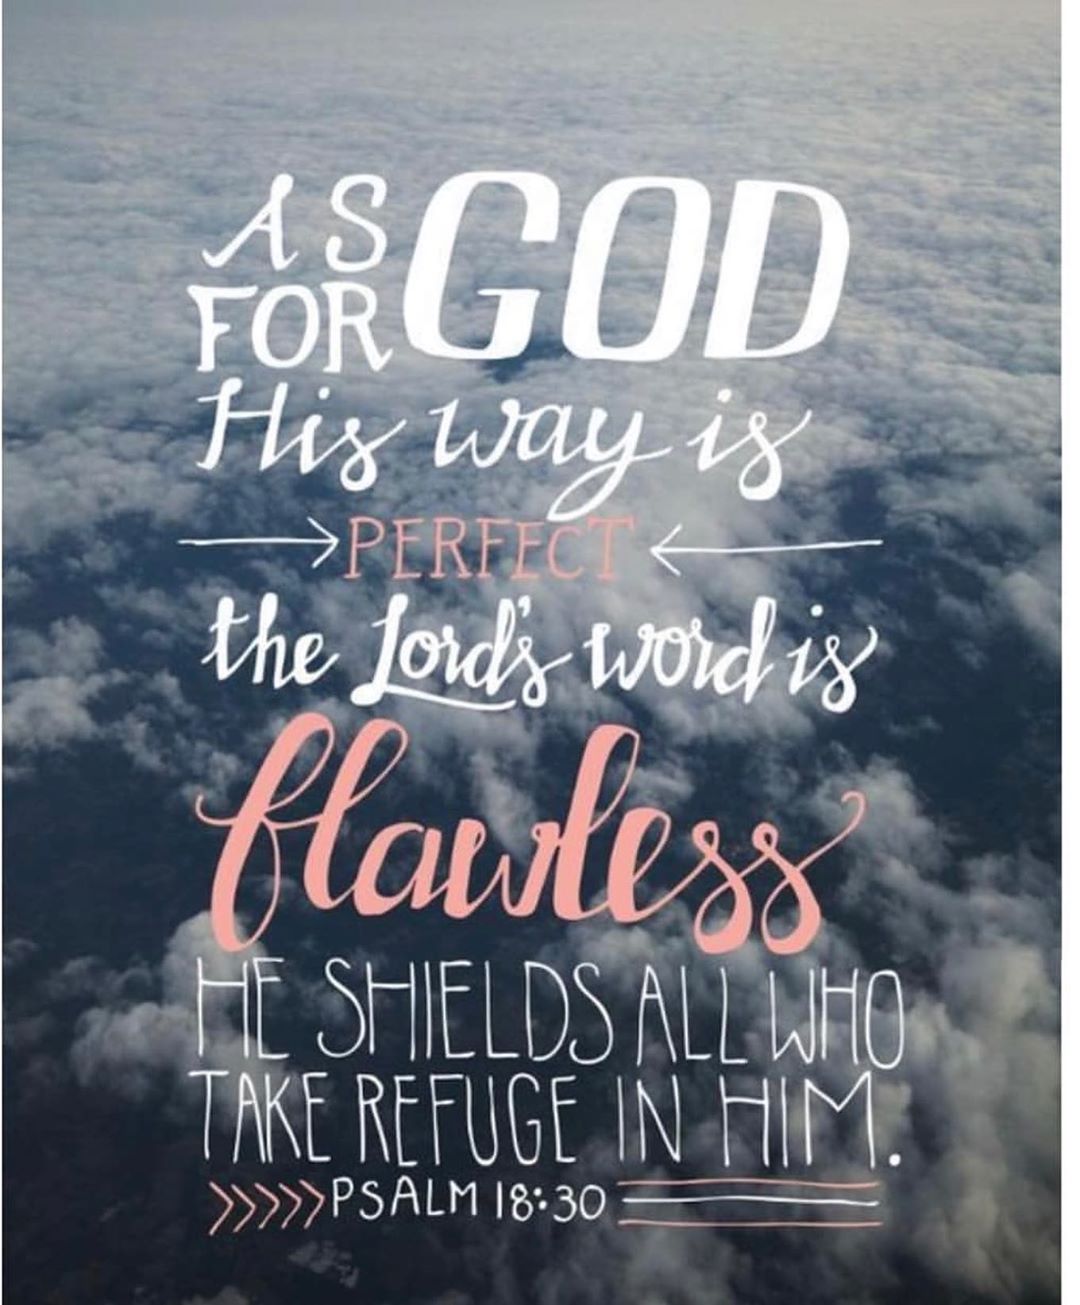 AS
FOR GOD
His way is
PERFECT
the Lord's word is
flawless
HE SHIELDS ALL WHO
TAKE REFUGE IN HIM.
PSALM 18:30